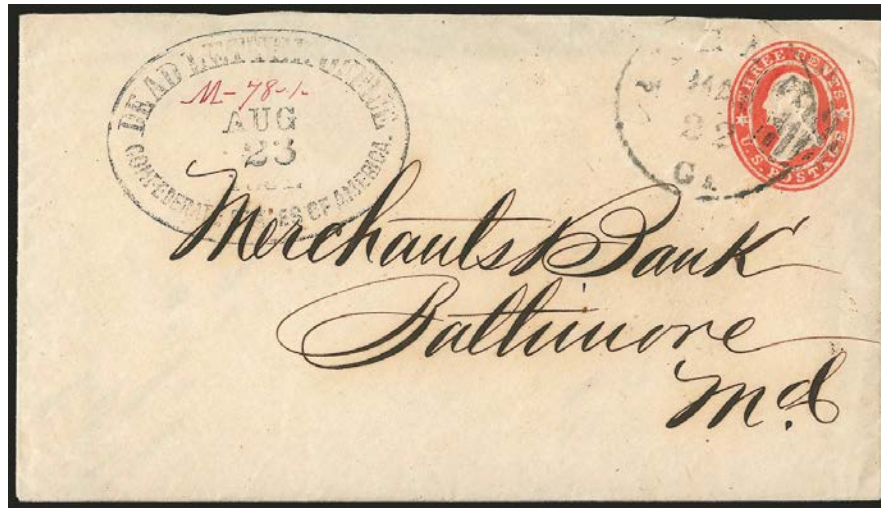 DEAD LETTER OFFICE.
M-78-
AUG
23
CONFEDERATE STATES OF AMERICA.
22
Ga.
THREE CENTS
U.S. POSTAGE
Merchants Bank
Baltimore
Md